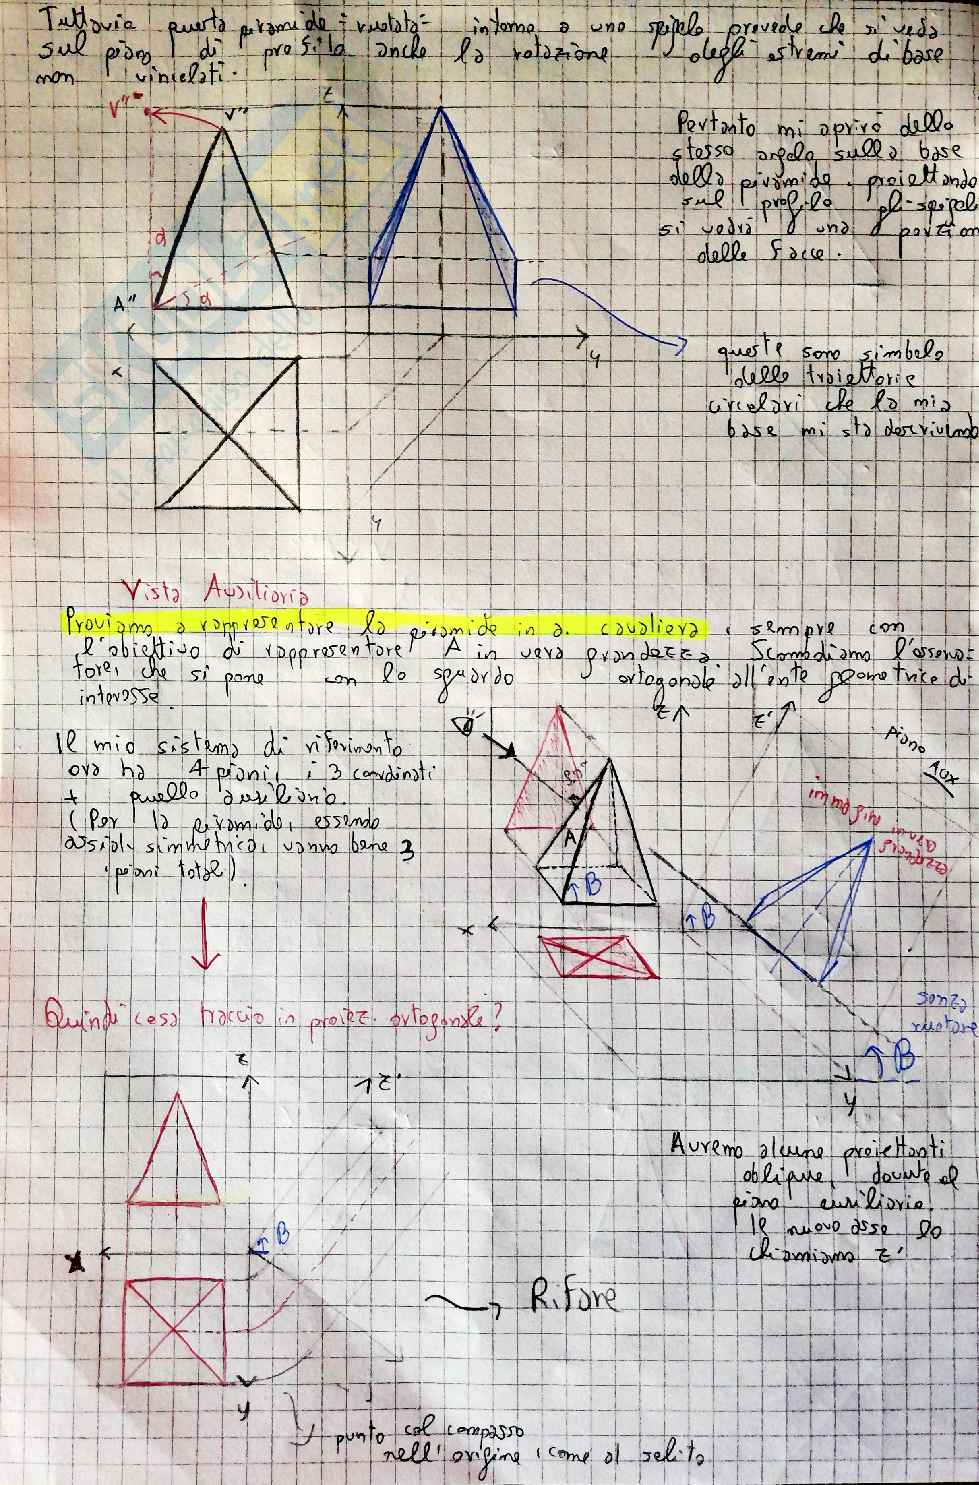 Tuttavia questa piramide "ruotata" intorno a uno spigolo prevede che si veda
sul piano di profilo anche la rotazione degli estremi di base
non vincolati.
V"*
V"
z
α
A"
α
x
y
y
Pertanto mi aprirò dello
stesso angolo sulla base
della piramide. proiettando
sul profilo gli spigoli
si vedrà una porzion
delle facce.
queste sono simbolo
delle traiettorie
circolari che la mia
base mi sta descrivendo
Vista Ausiliaria
Proviamo a rappresentare la piramide in a. cavaliera, sempre con
l'obiettivo di rappresentare A in vera grandezza. Scomodiamo l'osserva-
tore, che si pone con lo sguardo ortogonale all'ente geometrico di
interesse.
Il mio sistema di riferimento
ora ha 4 piani, i 3 coordinati
+ quello ausiliario.
(Per la piramide, essendo
assial. simmetrica, vanno bene 3
piani totali).
z
z'
Piano
Aux
90°
A
B
B
x
senza
ruotare
B
y
Quindi cosa traccio in proiez. ortogonale?
z
z'
B
x
y
Rifare
Avremo alcune proiettanti
oblique, dovute al
piano ausiliario.
Il nuovo asse lo
chiamiamo z'
punto col compasso
nell'origine, come al solito